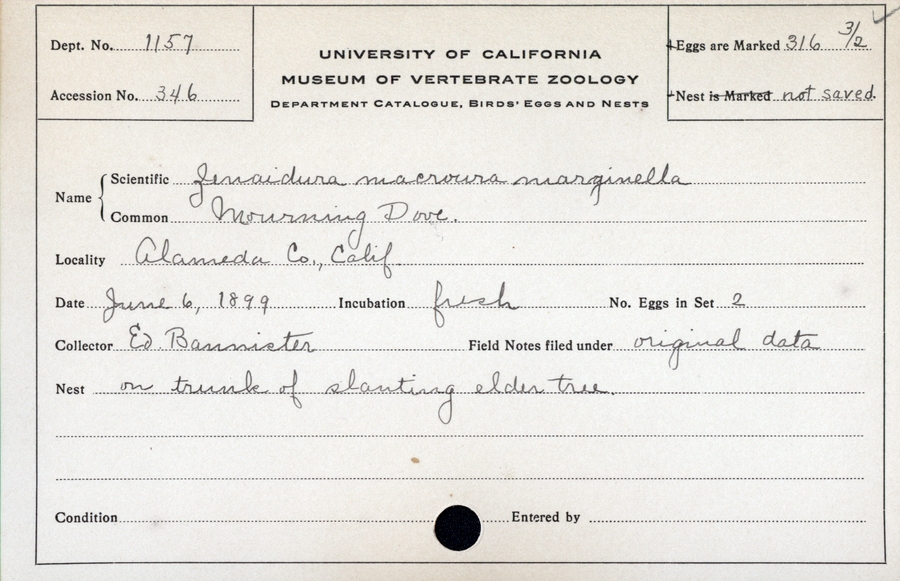 Dept. No. 1157
Accession No. 346
UNIVERSITY OF CALIFORNIA
MUSEUM OF VERTEBRATE ZOOLOGY
DEPARTMENT CATALOGUE, BIRDS' EGGS AND NESTS
Eggs are Marked 316 3/2
Nest is Marked not saved.
Name
Scientific Zenaidura macroura marginella
Common Mourning Dove.
Locality Alameda Co., Calif
Date June 6, 1899 Incubation fresh No. Eggs in Set 2
Collector Ed. Bannister Field Notes filed under original data
Nest on trunk of slanting elder tree.
Condition Entered by